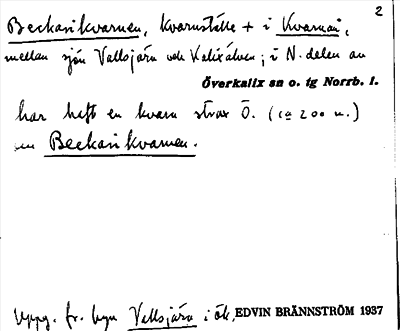 2
Beckasikvarnen, kvarnställe + i Kvarnån,
mellan sjön Vallsjärv och Kalixälven; i N. delen av
Överkalix sn o. tg Norrb. l.
har haft en kvarn strax Ö. (ca 200 m.)
om Beckasikvarnen.
Uppg. fr. byn Vallsjärv i Ök. EDVIN BRÄNNSTRÖM 1937